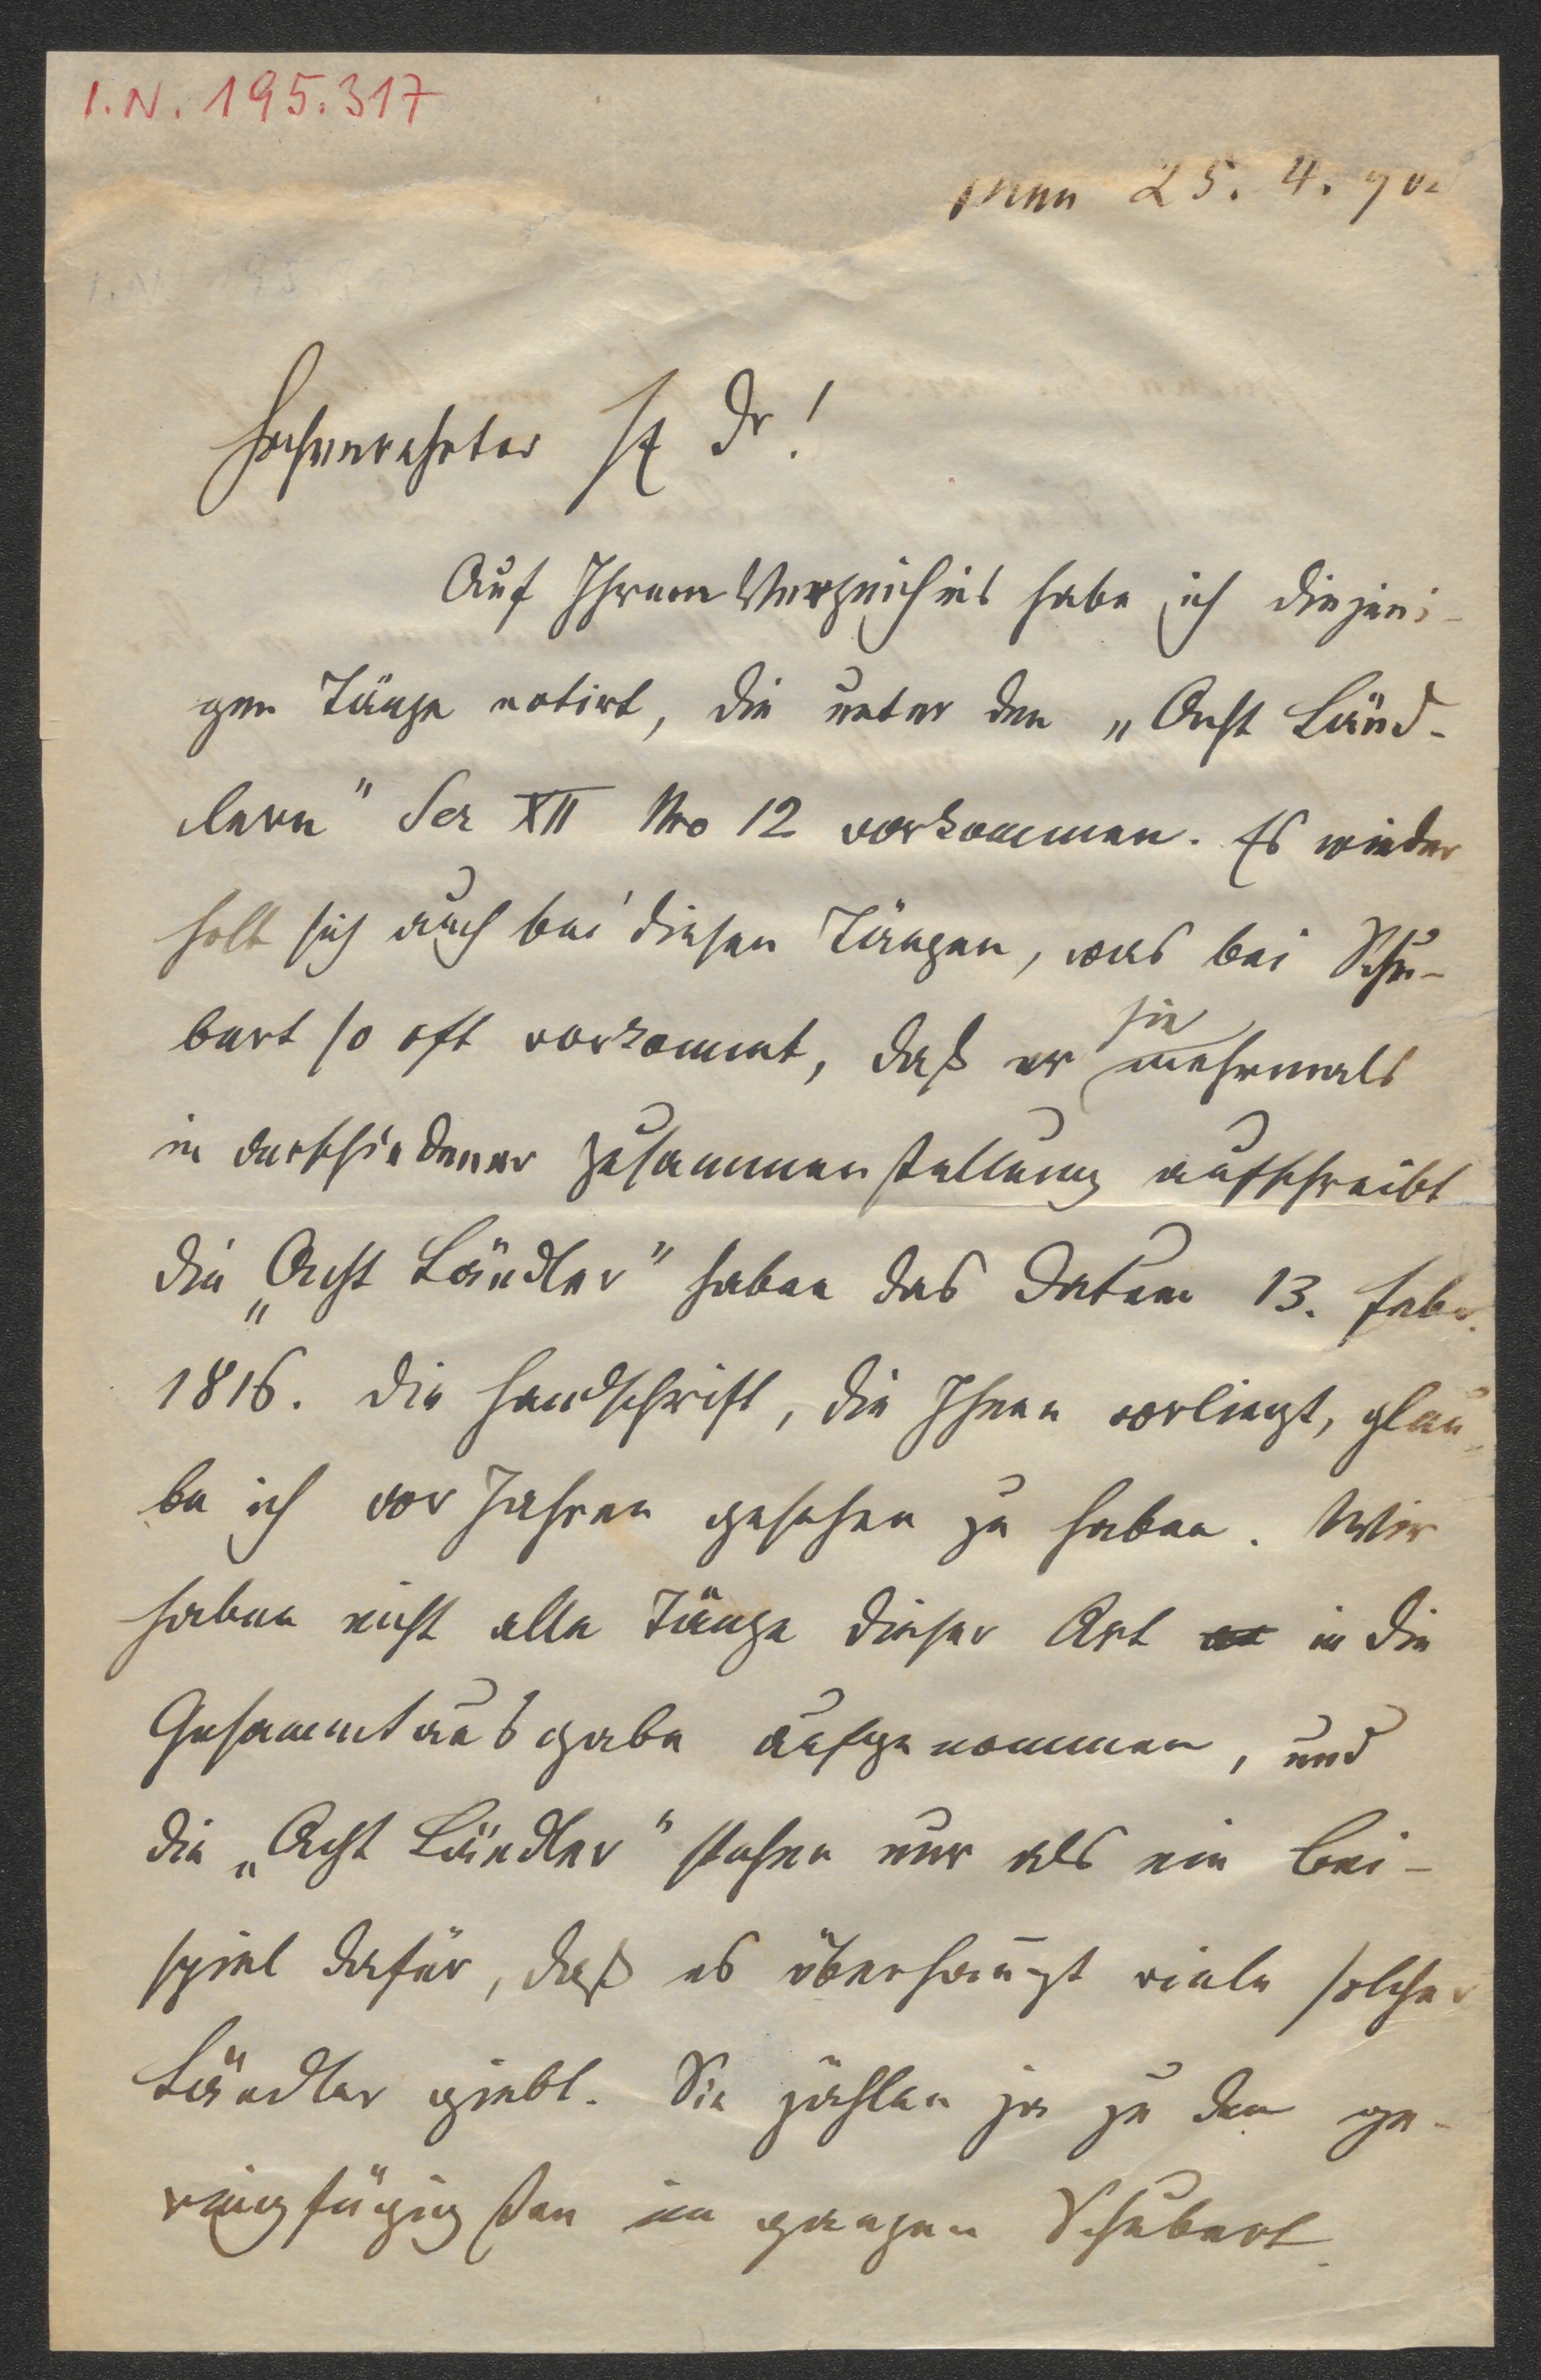 I.N. 195.317
25. 4. 902
Hochverehrter H Dr!
Auf Ihrem Verzeichnis habe ich diejeni-
gen Tänze notirt, die unter den „Acht Länd-
lern" Ser XII Nro 12 vorkommen. Es wieder
holt sich auch bei diesen Tänzen, was bei Schu-
bert so oft vorkommt, daß er sie mehrmals
in verschiedener Zusammenstellung aufschreibt
die „Acht Ländler" haben das Datum 13. Febr.
1816. Die Handschrift, die Ihnen vorliegt, glau
be ich vor Jahren gesehen zu haben. Wir
haben nicht alle Tänze dieser Art in die
Gesammtausgabe aufgenommen, und
die „Acht Ländler" stehen nur als ein Bei-
spiel dafür, daß es überhaupt viele solcher
Ländler giebt. Sie zählen ja zu den ge-
ringfügigsten im ganzen Schubert.